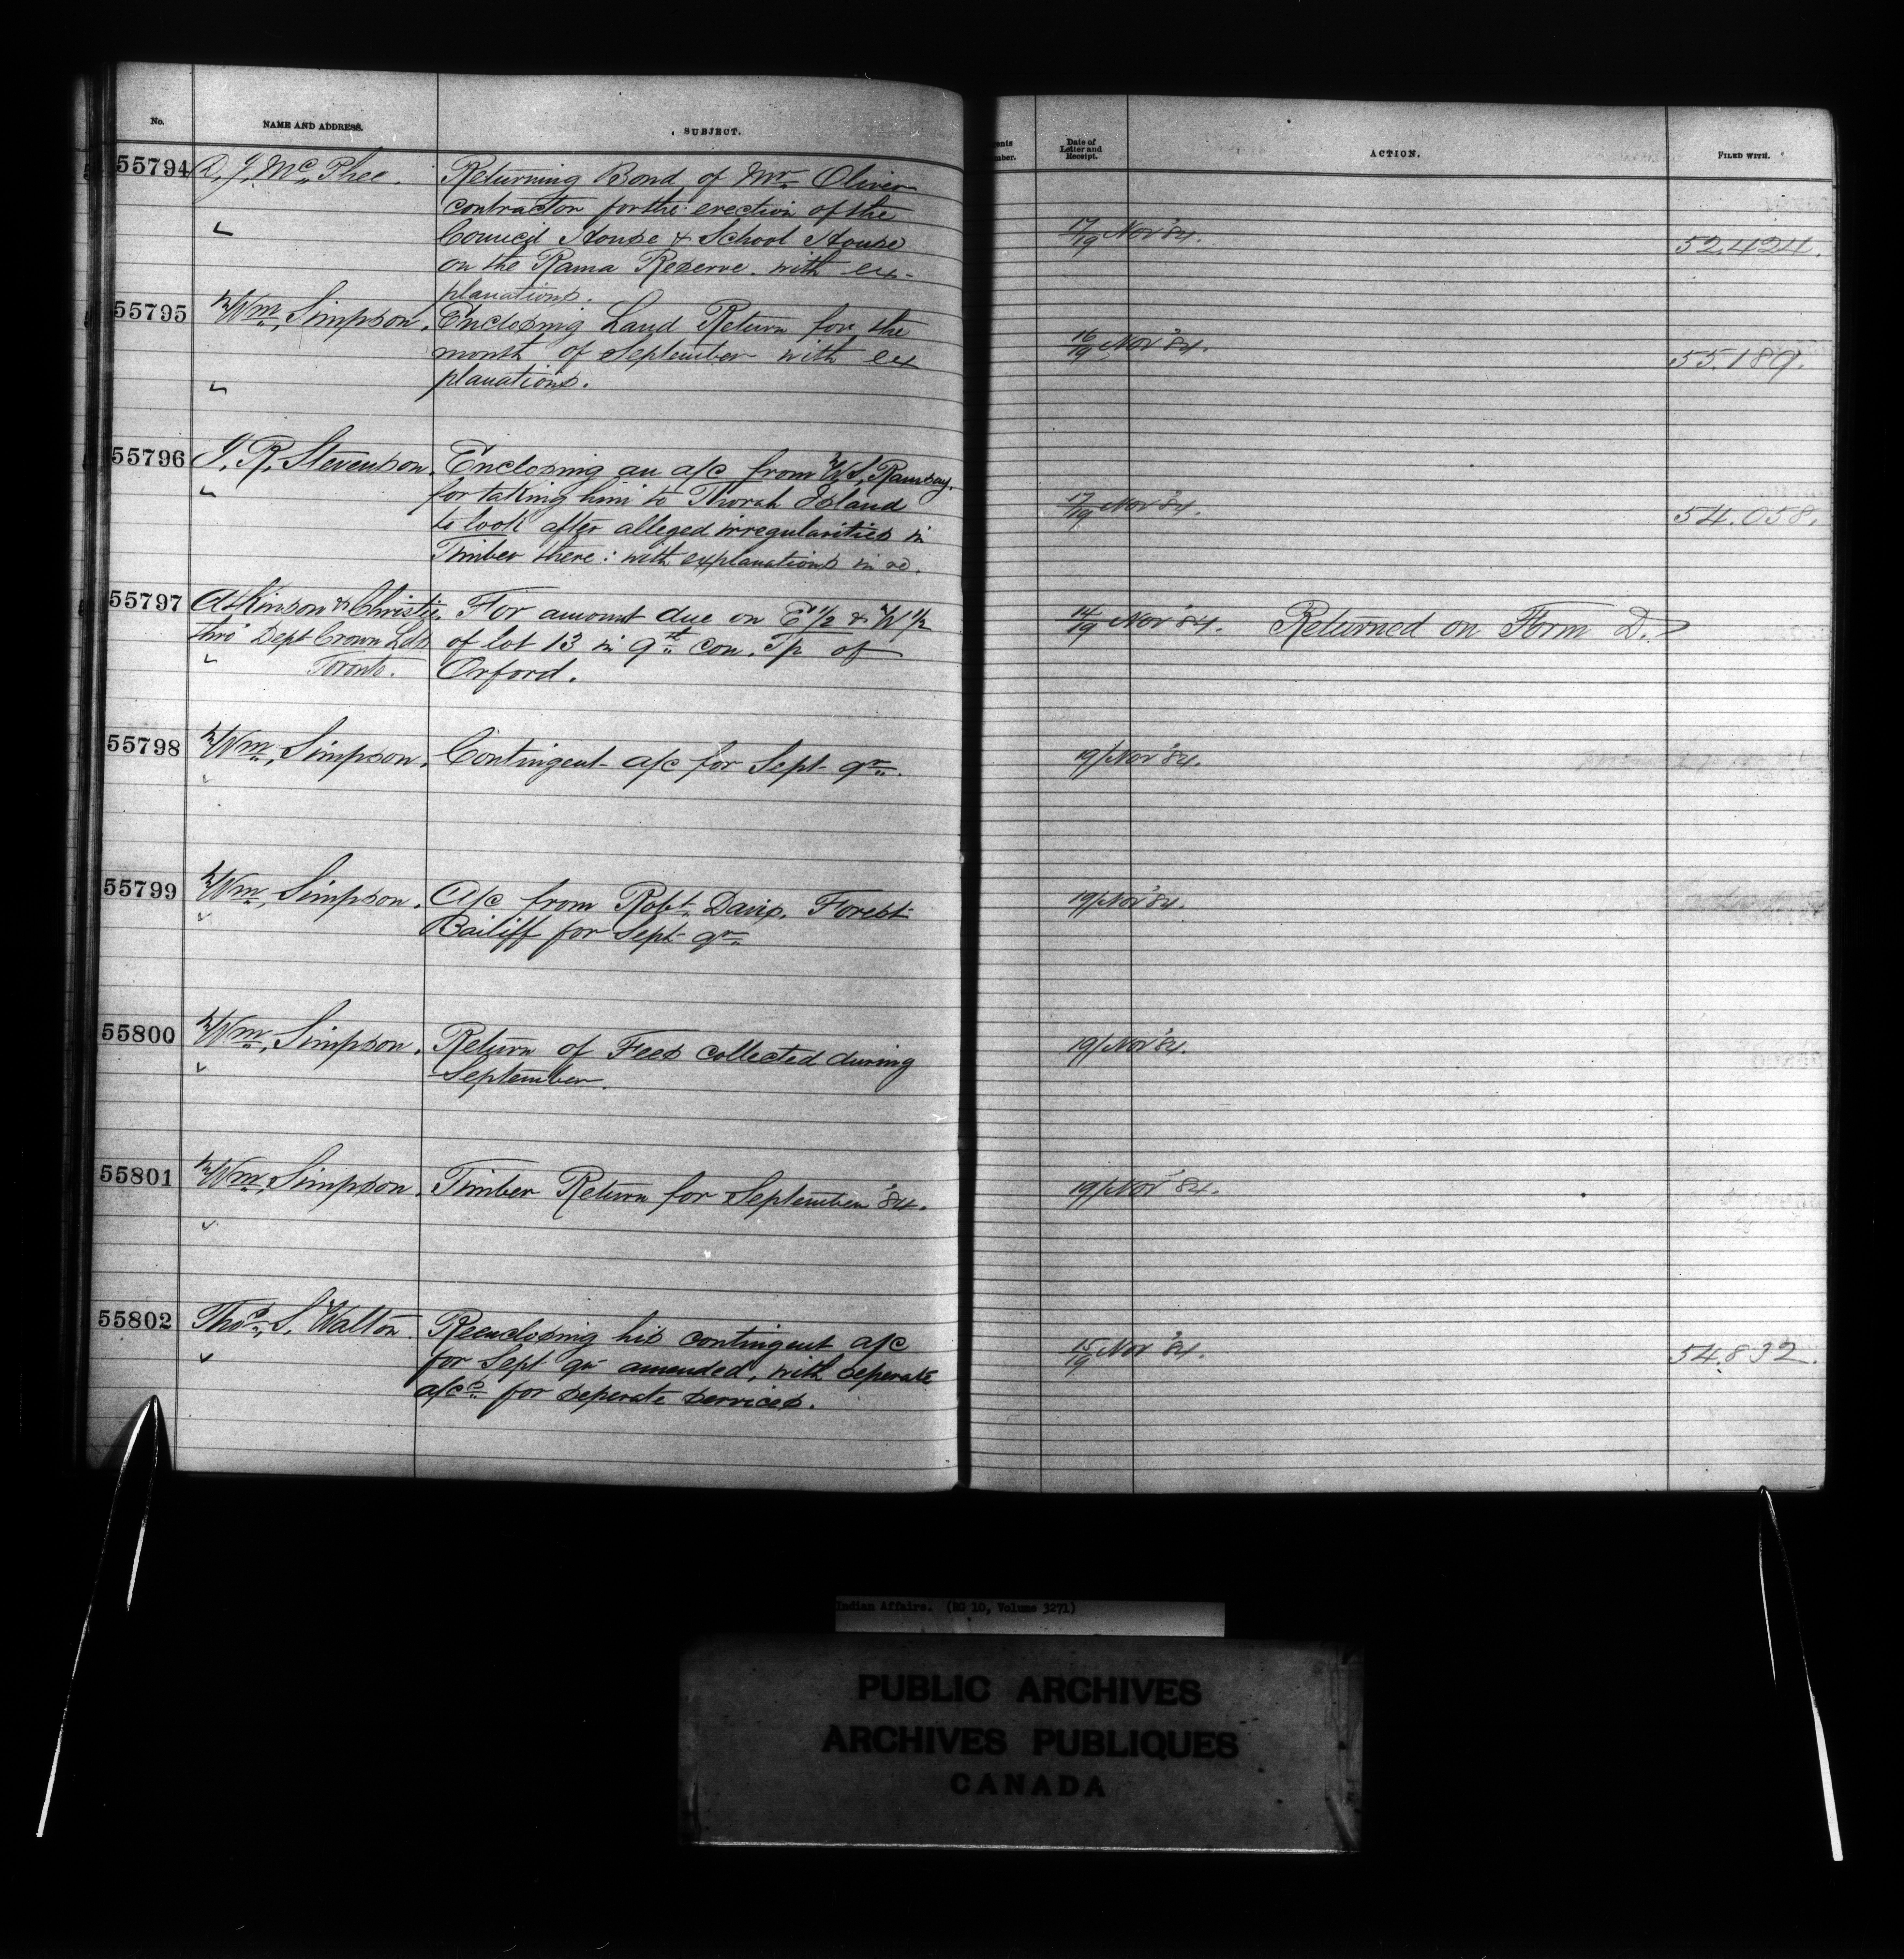 No.
NAME AND ADDRESS.
SUBJECT.
55794
D. J. McPhee.
Returning Bond of Mr Oliver
contractor for the erection of the
Council House & School House
on the Rama Reserve. with ex-
planations.
55795
Wm. Simpson.
Enclosing Land Return for the
month of September with ex
planations.
55796
J. R. Stevenson.
Enclosing an a/c from W. S. Ramsay.
for taking him to Thorah Island
to look after alleged irregularities in
Timber there: with explanations in re.
55797
Atkinson & Christie.
thro' Dept Crown Lds
Toronto.
For amount due on E 1/2 & W 1/2
of lot 13 in 9th con. Tp of
Orford.
55798
Wm. Simpson.
Contingent a/c for Sept qr.
55799
Wm. Simpson.
A/c from Robt. Davis. Forest
Bailiff for Sept qr
55800
Wm. Simpson.
Return of Fees collected during
September.
55801
Wm. Simpson.
Timber Return for September '84.
55802
Thos. S. Walton.
Reenclosing his contingent a/c
for Sept qr amended, with seperate
a/cs for seperate services.
ents
mber.
Date of
Letter and
Receipt.
ACTION.
FILED WITH.
17/19 Nov '84.
52.424.
16/19 Nov '84.
55.189.
17/19 Nov '84.
54.058.
14/19 Nov '84.
Returned on Form D.
19/Nov '84.
19/Nov '84.
19/Nov '84.
19/Nov '84.
15/19 Nov '84.
54.832.
Indian Affairs. (RG 10, Volume 3271)
PUBLIC ARCHIVES
ARCHIVES PUBLIQUES
CANADA